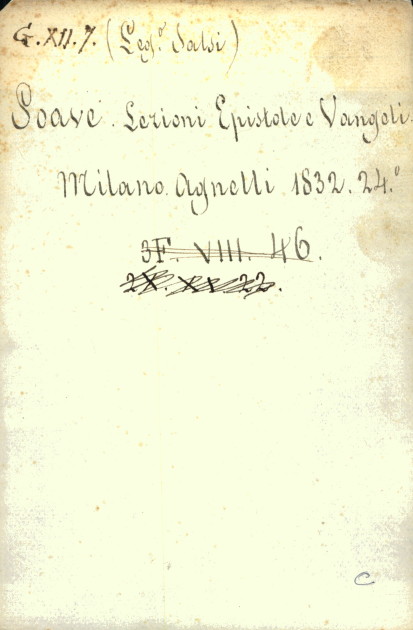 G. XII. 7. (Leg.º Salsi)
Soave. Lezioni Epistole e Vangeli.
Milano. Agnelli 1832. 24.º
3F. VIII. 46.
2X. XX 22.
C